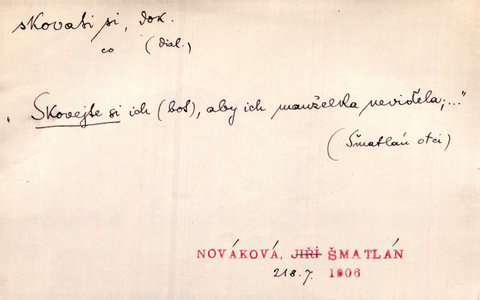 skovati si, dok.
co (dial.)
„Skovejte si ich (bot), aby ich manželka neviděla;..."
(Šmatlán otci)
NOVÁKOVÁ, JIŘÍ ŠMATLÁN
218.7. 1906